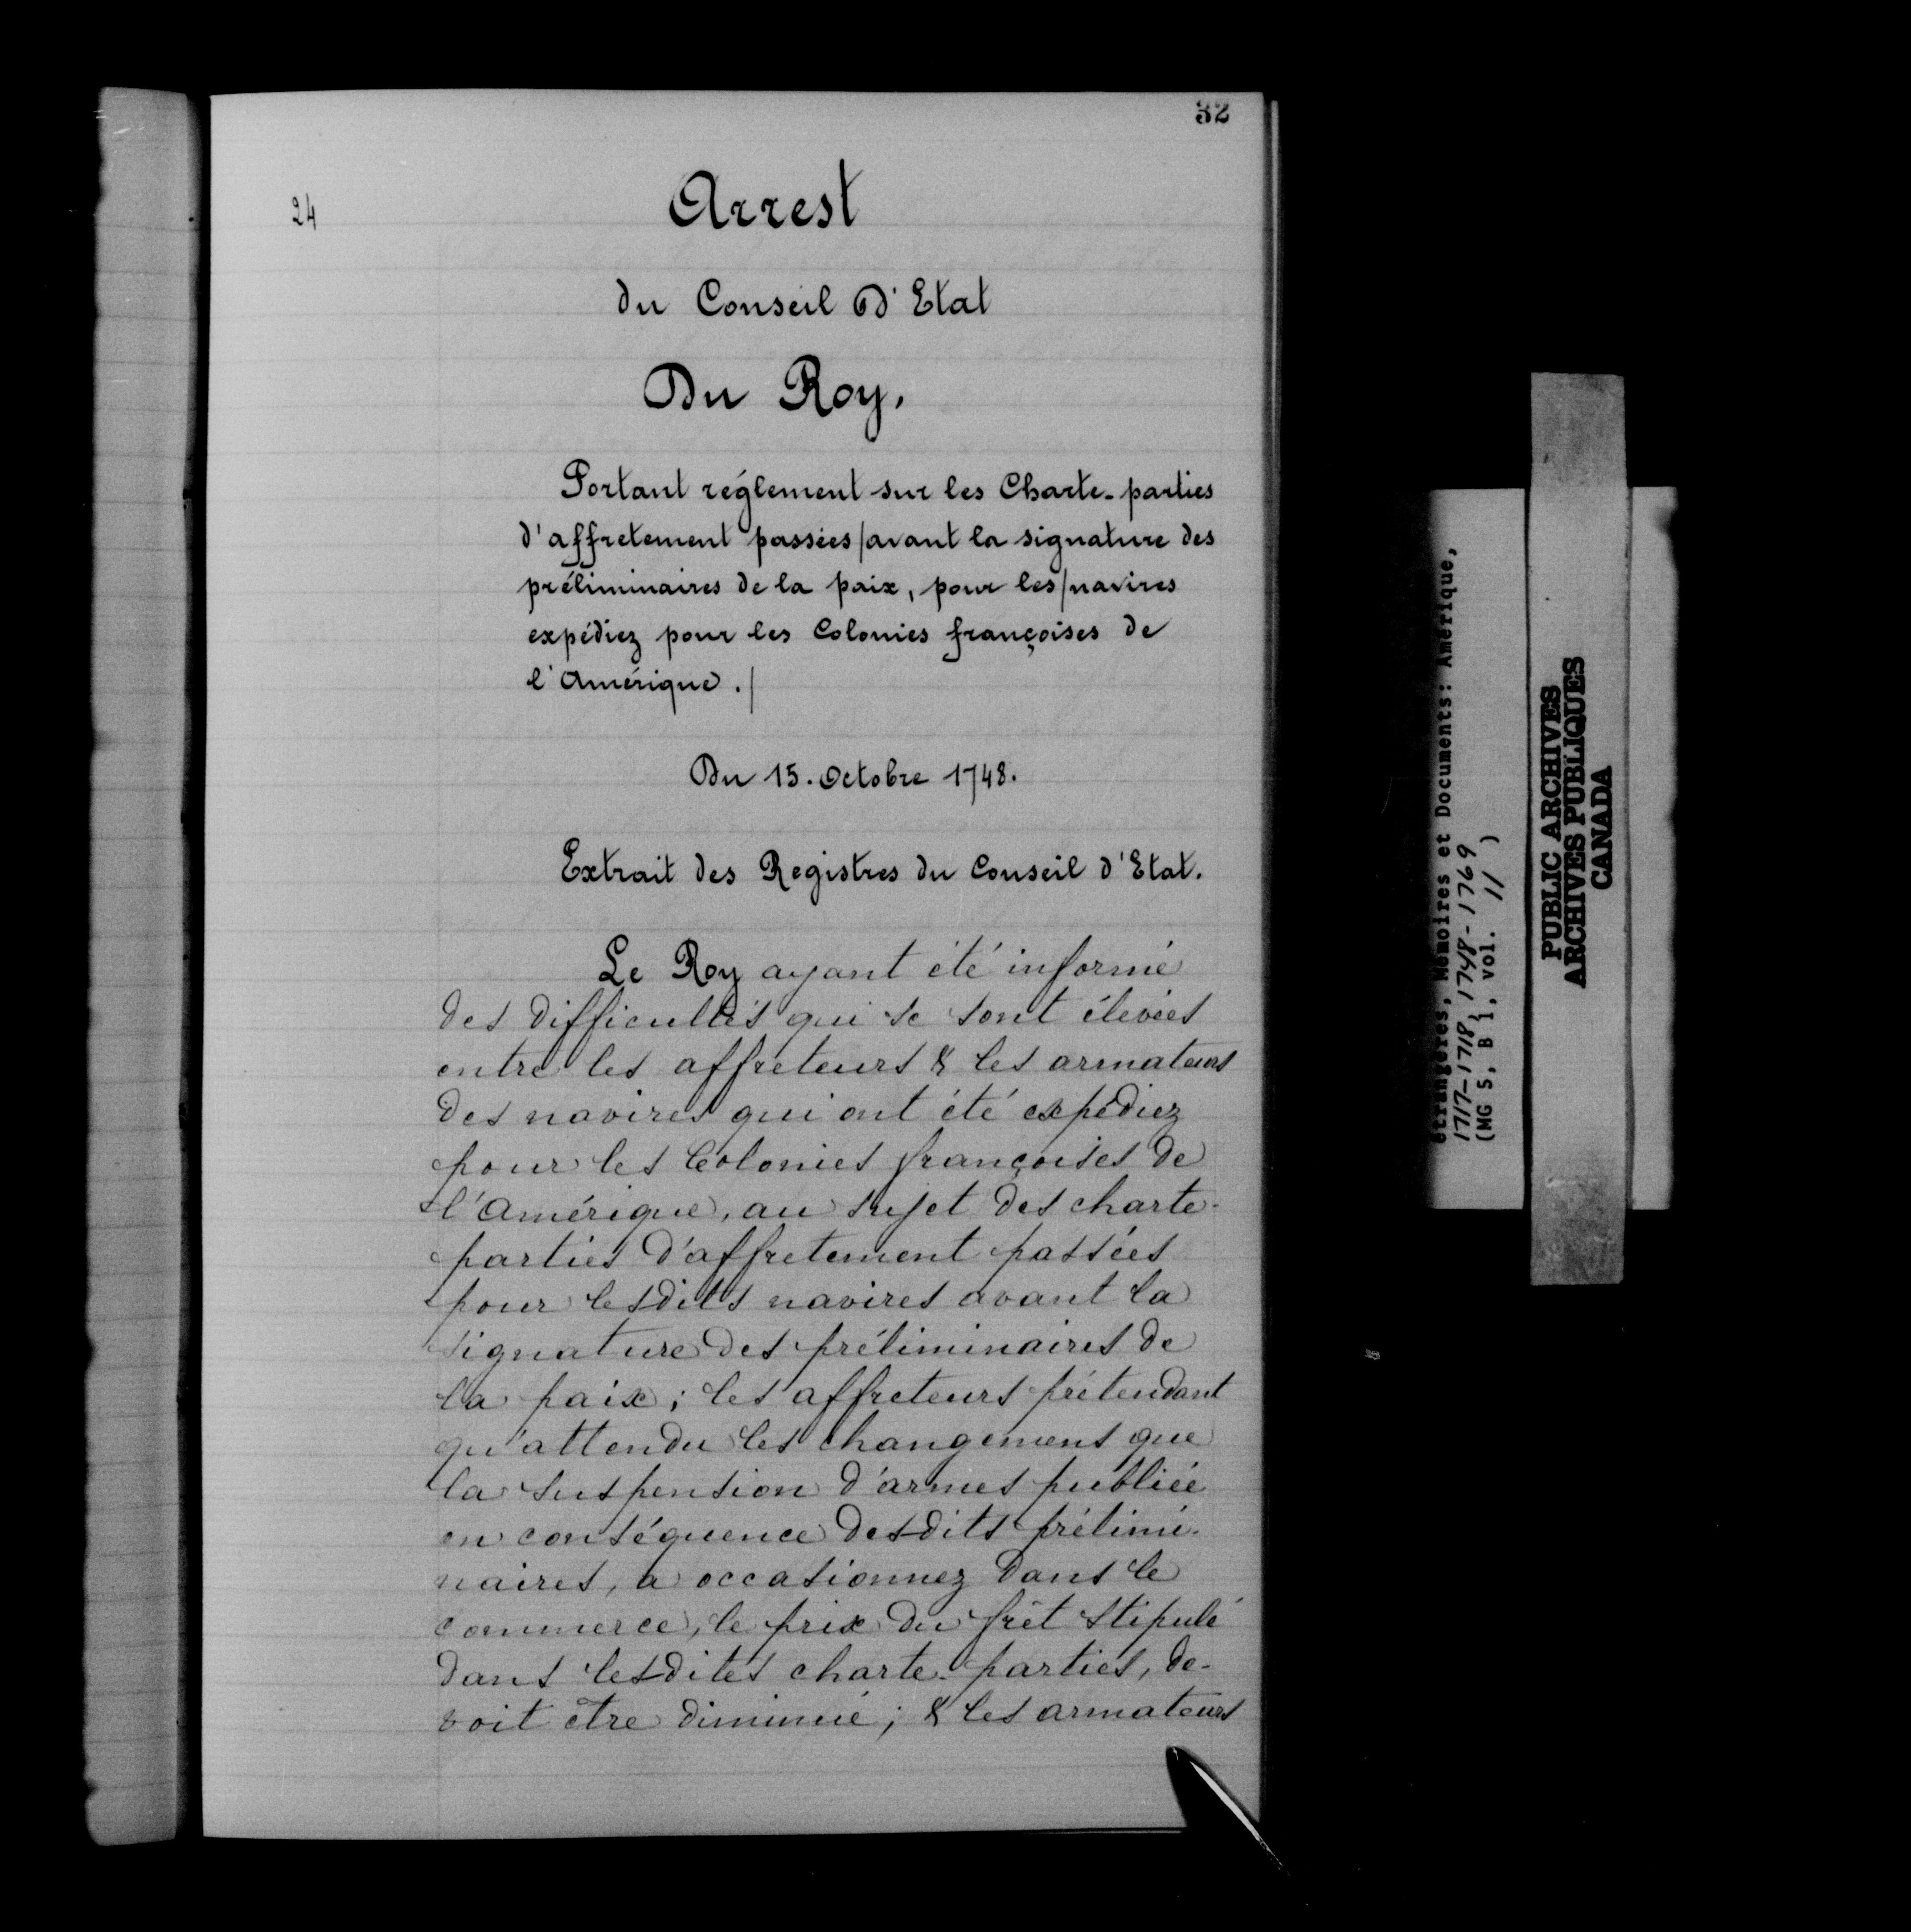 32
24
Arrest
du Conseil D'Etat
Du Roy.
Portant réglement sur les Charte-parties
d'affretement passées/avant la signature des
préliminaires de la paix, pour les/navires
expédiez pour les Colonies françoises de
l'Amérique./
Du 15. Octobre 1748.
Extrait des Registres du Conseil d'Etat.
Le Roy ayant été informé
des difficultés qui se sont élevées
entre les affreteurs & les armateurs
des navires qui ont été expédiez
pour les Colonies françoises de
l'Amérique, au sujet des charte-
parties d'affretement passées
pour lesdits navires avant la
signature des préliminaires de
la paix; les affreteurs prétendant
qu'attendu les changemens que
la suspension d'armes publiée
en conséquence desdits prélimi-
naires, a occasionnez dans le
commerce, le prix du frêt stipulé
dans lesdites charte-parties, de-
voit être diminué; & les armateurs
étrangères, Mémoires et Documents: Amérique,
1717-1718, 1748-1769
(MG 5, B 1, vol. 11 )
PUBLIC ARCHIVES
ARCHIVES PUBLIQUES
CANADA